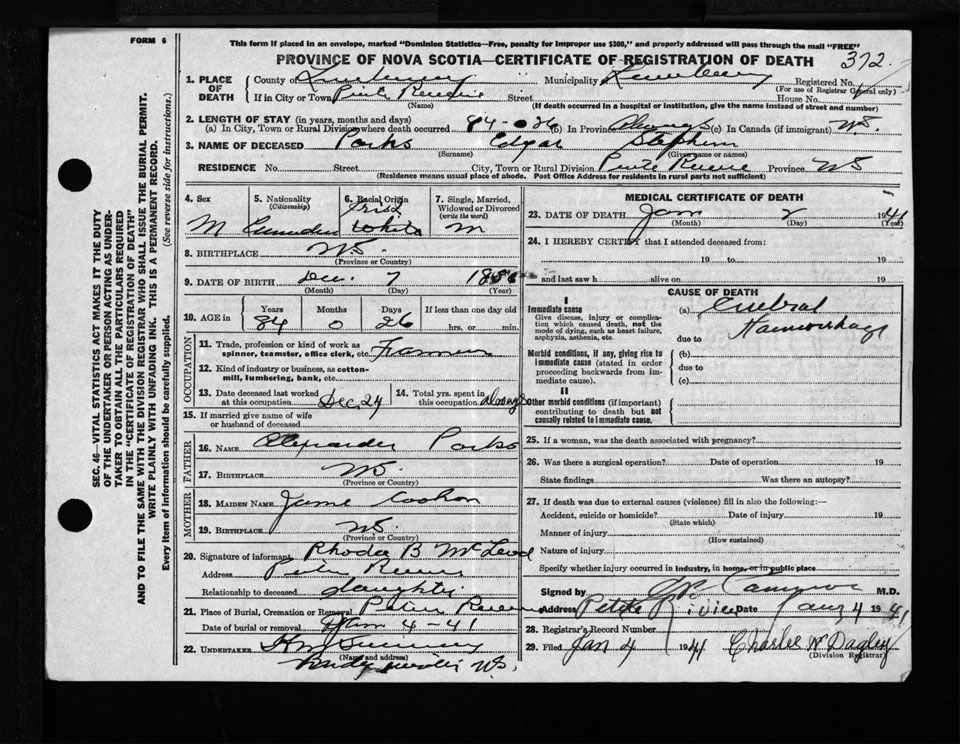 FORM 6
This form if placed in an envelope, marked "Dominion Statistics—Free, penalty for improper use $300," and properly addressed will pass through the mail "FREE"
PROVINCE OF NOVA SCOTIA—CERTIFICATE OF REGISTRATION OF DEATH 372
1. PLACE OF DEATH County of Lunenburg Municipality Lunenburg Registered No. (For use of Registrar General only)
If in City or Town Street House No.
(Name) (If death occurred in a hospital or institution, give the name instead of street and number)
2. LENGTH OF STAY (in years, months and days)
(a) In City, Town or Rural Division where death occurred 84-0-26 (b) In Province Always (c) In Canada (if immigrant) N.S.
3. NAME OF DECEASED Parks Edgar Stephen
(Surname) (Given name or names)
RESIDENCE No. Street City, Town or Rural Division Petite Riviere Province NS
(Residence means usual place of abode. Post Office Address for residents in rural parts not sufficient)
4. Sex M
5. Nationality (Citizenship) Canadian
6. Racial Origin Irish White
7. Single, Married, Widowed or Divorced (write the word) M
8. BIRTHPLACE N.S.
(Province or Country)
9. DATE OF BIRTH Dec. 7 1856
(Month) (Day) (Year)
10. AGE in Years 84 Months 0 Days 26 If less than one day old hrs. or min.
OCCUPATION
11. Trade, profession or kind of work as spinner, teamster, office clerk, etc. Farmer
12. Kind of industry or business, as cotton-mill, lumbering, bank, etc.
13. Date deceased last worked at this occupation Dec. 24
14. Total yrs. spent in this occupation Always
15. If married give name of wife or husband of deceased
FATHER
16. NAME Alexander Parks
17. BIRTHPLACE N.S.
(Province or Country)
MOTHER
18. MAIDEN NAME Jane
19. BIRTHPLACE N.S.
(Province or Country)
20. Signature of informant Rhoda B McLeod
Address Petite Riviere
Relationship to deceased daughter
21. Place of Burial, Cremation or Removal Petite Riviere
Date of burial or removal Jan 4-41
22. UNDERTAKER
(Name and address) N.S.
MEDICAL CERTIFICATE OF DEATH
23. DATE OF DEATH Jan 2 1941
(Month) (Day) (Year)
24. I HEREBY CERTIFY that I attended deceased from:
19 to 19
and last saw h alive on 19
CAUSE OF DEATH
I
Immediate cause
Give disease, injury or complication which caused death, not the mode of dying, such as heart failure, asphyxia, asthenia, etc.
(a) Cerebral Haemorrhage
due to
Morbid conditions, if any, giving rise to immediate cause (stated in order proceeding backwards from immediate cause).
(b)
due to
(c)
II
Other morbid conditions (if important) contributing to death but not causally related to immediate cause.
25. If a woman, was the death associated with pregnancy?
26. Was there a surgical operation? Date of operation 19
State findings Was there an autopsy?
27. If death was due to external causes (violence) fill in also the following:—
Accident, suicide or homicide? Date of injury 19
(State which)
Manner of injury
(How sustained)
Nature of injury
Specify whether injury occurred in industry, in home, or in public place
Signed by M.D.
Address Petite Riviere Date Jan 4 1941
28. Registrar's Record Number
29. Filed Jan 4 1941 Charles W Dagley
(Division Registrar)
SEC. 46—VITAL STATISTICS ACT MAKES IT THE DUTY
OF THE UNDERTAKER OR PERSON ACTING AS UNDER-
TAKER TO OBTAIN ALL THE PARTICULARS REQUIRED
IN THE "CERTIFICATE OF REGISTRATION OF DEATH"
AND TO FILE THE SAME WITH THE DIVISION REGISTRAR WHO SHALL ISSUE THE BURIAL PERMIT.
WRITE PLAINLY WITH UNFADING INK. THIS IS A PERMANENT RECORD.
Every item of information should be carefully supplied. (See reverse side for instructions.)